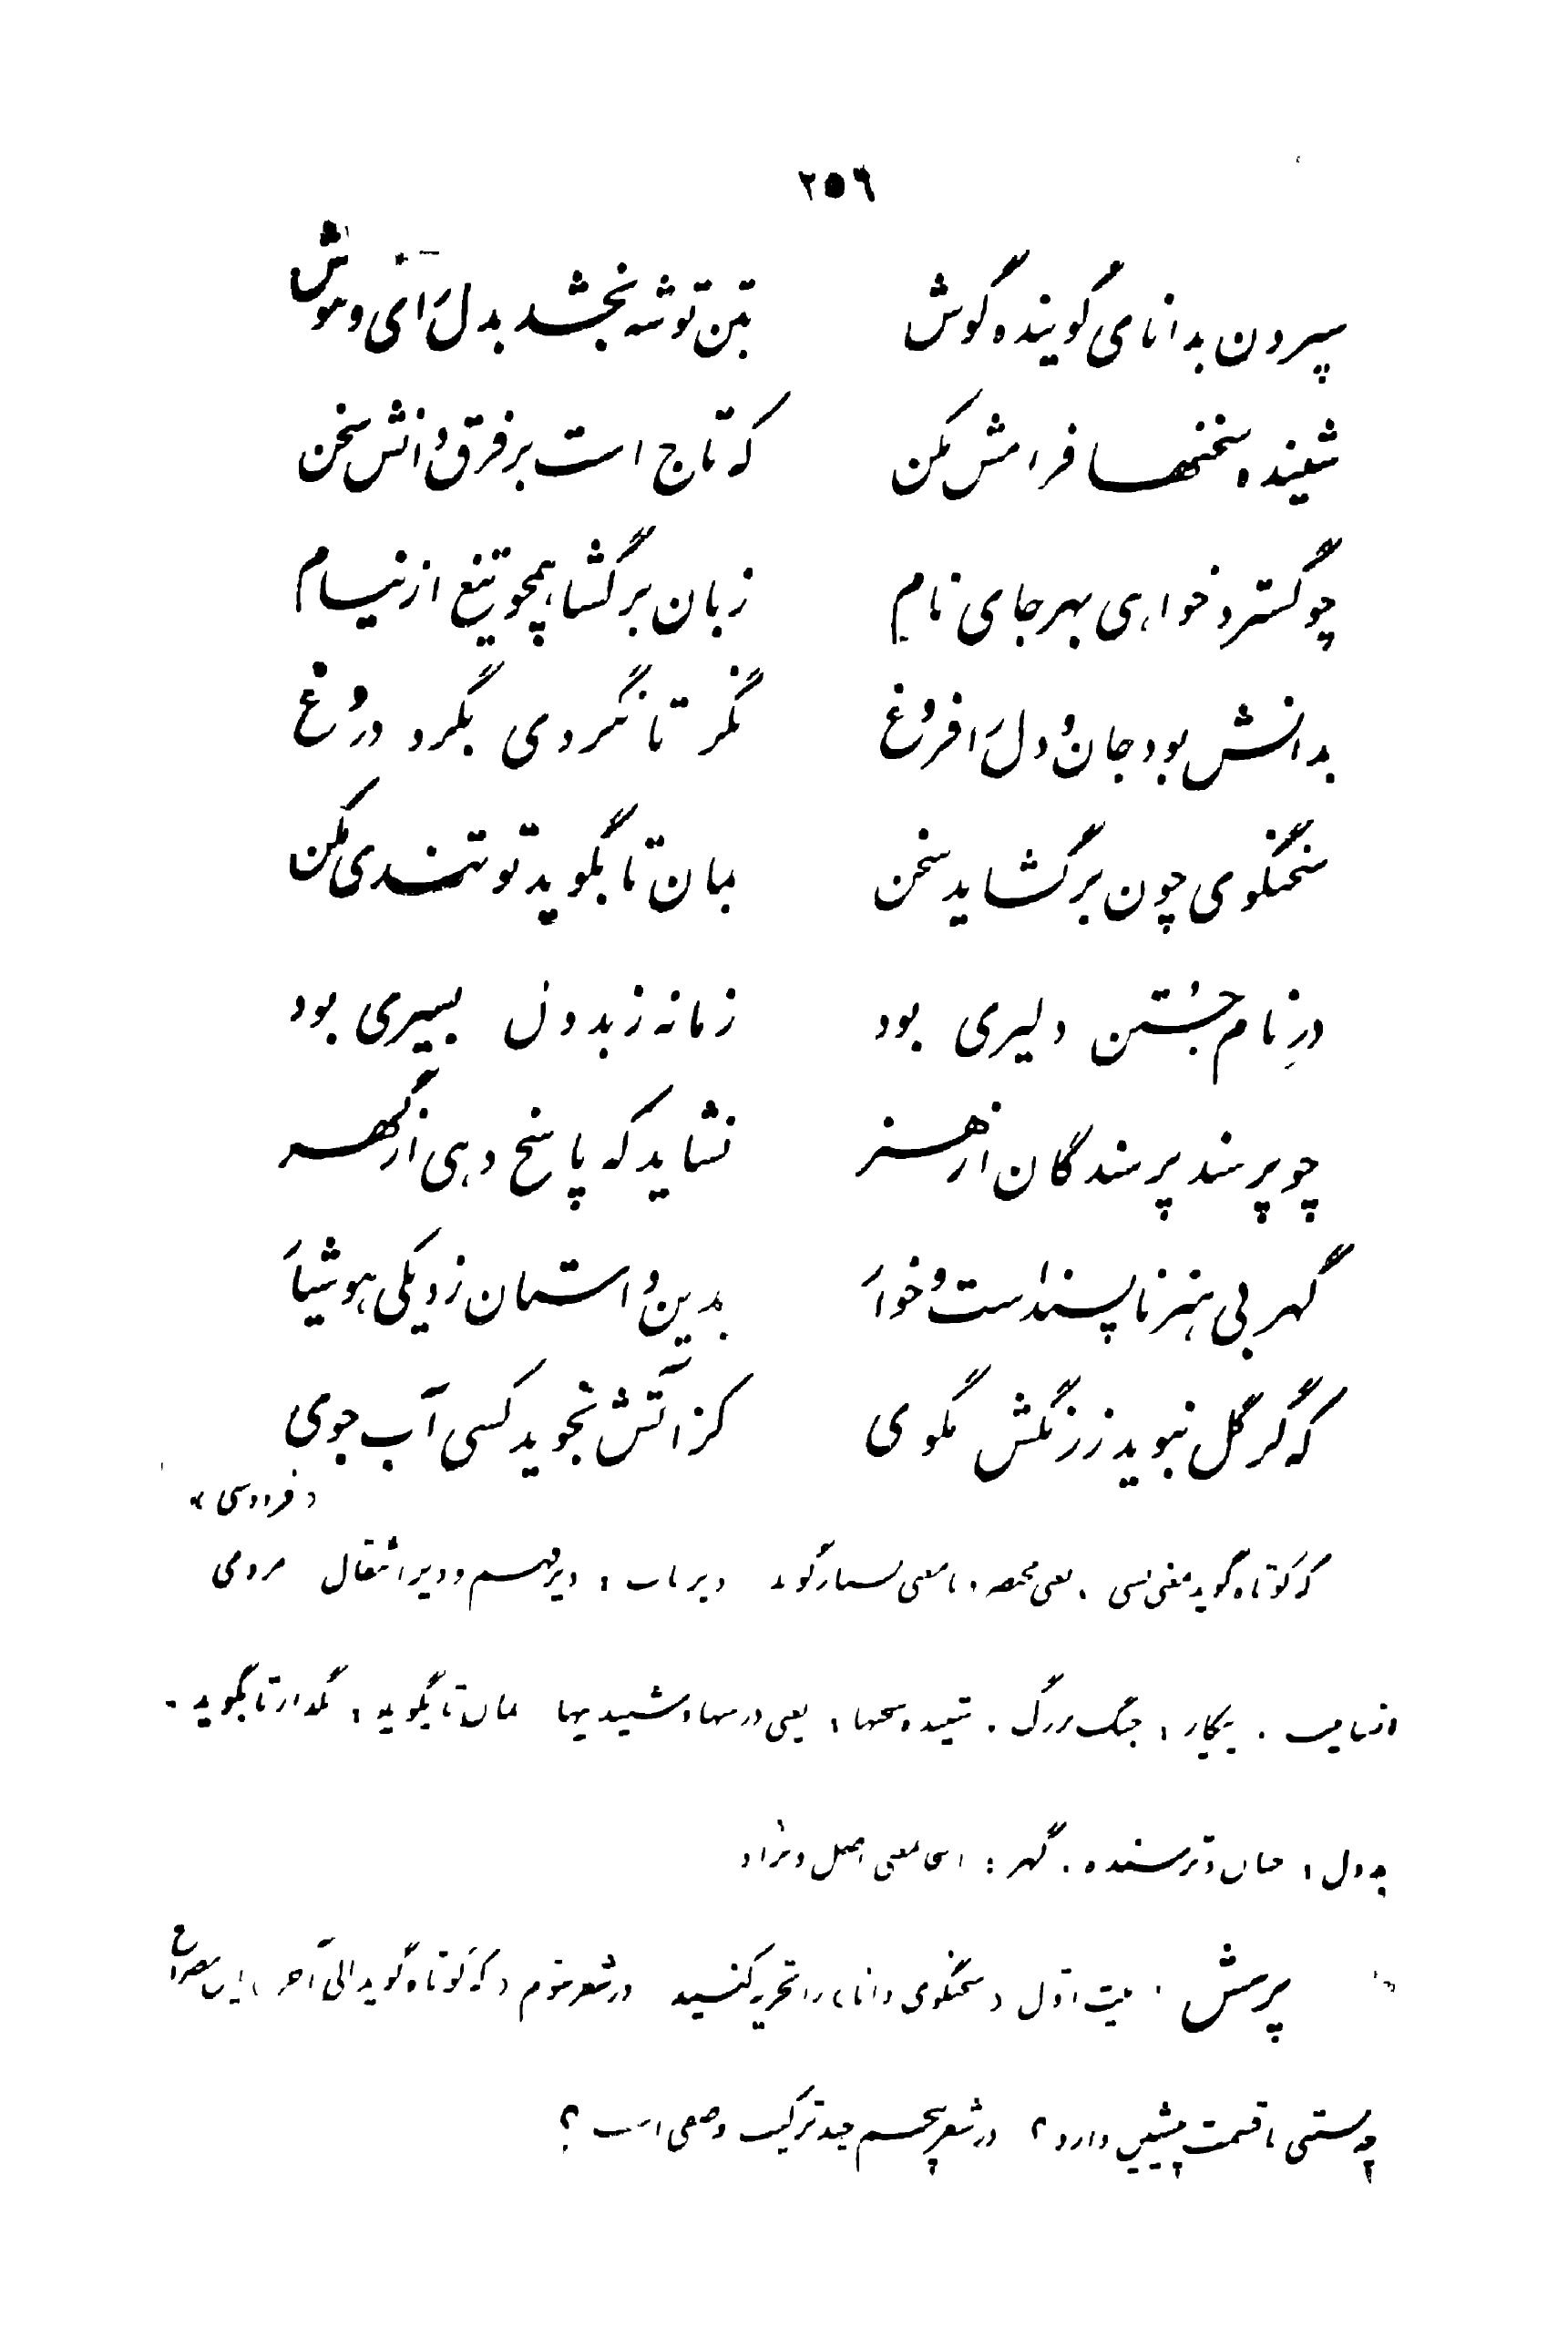 ۲۵۶
سپردن بدانای گوینده گوش    بتن توشه بخشد بدل رای و هوش
شنیده سخنها فرامش مکن    که تاج است بر فرق دانش سخن
چو گسترد خواهی بهر جای نام    زبان برگشا همچو تیغ از نیام
بدانش بود جان و دل را فروغ    نگر تا نگردی بگرد دروغ
سخنگوی چون برگشاید سخن    بمان تا بگوید تو تندی مکن
درِ نام جُستن دلیری بود    زمانه ز بددل بسیری بود
چو پرسند پرسندگان از هنر    نشاید که پاسخ دهی از گهر
گهر بی هنر ناپسند است و خوار    بدین داستان زد یکی هوشیار
که گر گل نبوید ز رنگش مگوی    کز آتش نجوید کسی آب جوی
(فردوسی)
که کوتاه گوید بمعنی بسی ، یعنی مختصر و با معنی بسیار گوید    دیریاب : دیرفهم و دیر انتقال    مردمی
انسانیت . پیکار : جنگ بزرگ . شنیده سخنها : یعنی درسها و شنیدنیها    بمان تا بگوید : بگذار تا بگوید .
بددل : جبان و ترسنده . گهر : اینجا بمعنی اصل و نژاد
پرسش . بیت اوّل (سخنگوی دانا) را تجزیه کنید    در شعر سوّم (که کوتاه گوید الی آخر) این مصراع
چه نسبتی با قسمت پیشین دارد ؟    در شعر پنجم چند ترکیب وصفی است ؟